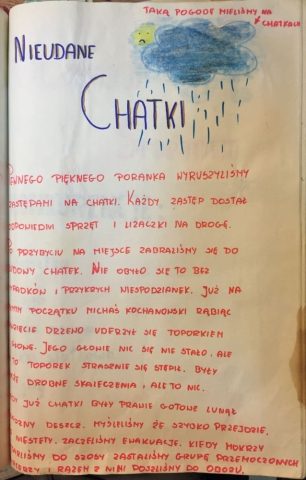 TAKĄ POGODĘ MIELIŚMY NA
CHATKACH
NIEUDANE
CHATKI
PEWNEGO PIĘKNEGO PORANKA WYRUSZYLIŚMY
ZASTĘPAMI NA CHATKI. KAŻDY ZASTĘP DOSTAŁ
ODPOWIEDNI SPRZĘT I LIZACZKI NA DROGĘ.
PO PRZYBYCIU NA MIEJSCE ZABRALIŚMY SIĘ DO
BUDOWY CHATEK. NIE OBYŁO SIĘ TO BEZ
WYPADKÓW I PRZYKRYCH NIESPODZIANEK. JUŻ NA
SAMYM POCZĄTKU MICHAŚ KOCHANOWSKI RĄBIĄC
DRZEWO UDERZYŁ SIĘ TOPORKIEM
GŁOWĘ. JEGO GŁOWIE NIC SIĘ NIE STAŁO, ALE
TOPOREK STRASZNIE SIĘ STĘPIŁ. BYŁY
DROBNE SKALECZENIA, ALE TO NIC.
GDY JUŻ CHATKI BYŁY PRAWIE GOTOWE LUNĄŁ
DESZCZ. MYŚLELIŚMY ŻE SZYBKO PRZEJDZIE,
NIESTETY. ZACZĘLIŚMY EWAKUACJĘ. KIEDY MOKRZY
DO SZOSY ZASTALIŚMY GRUPĘ PRZEMOCZONYCH
I RAZEM Z NIMI POSZLIŚMY DO OBOZU.